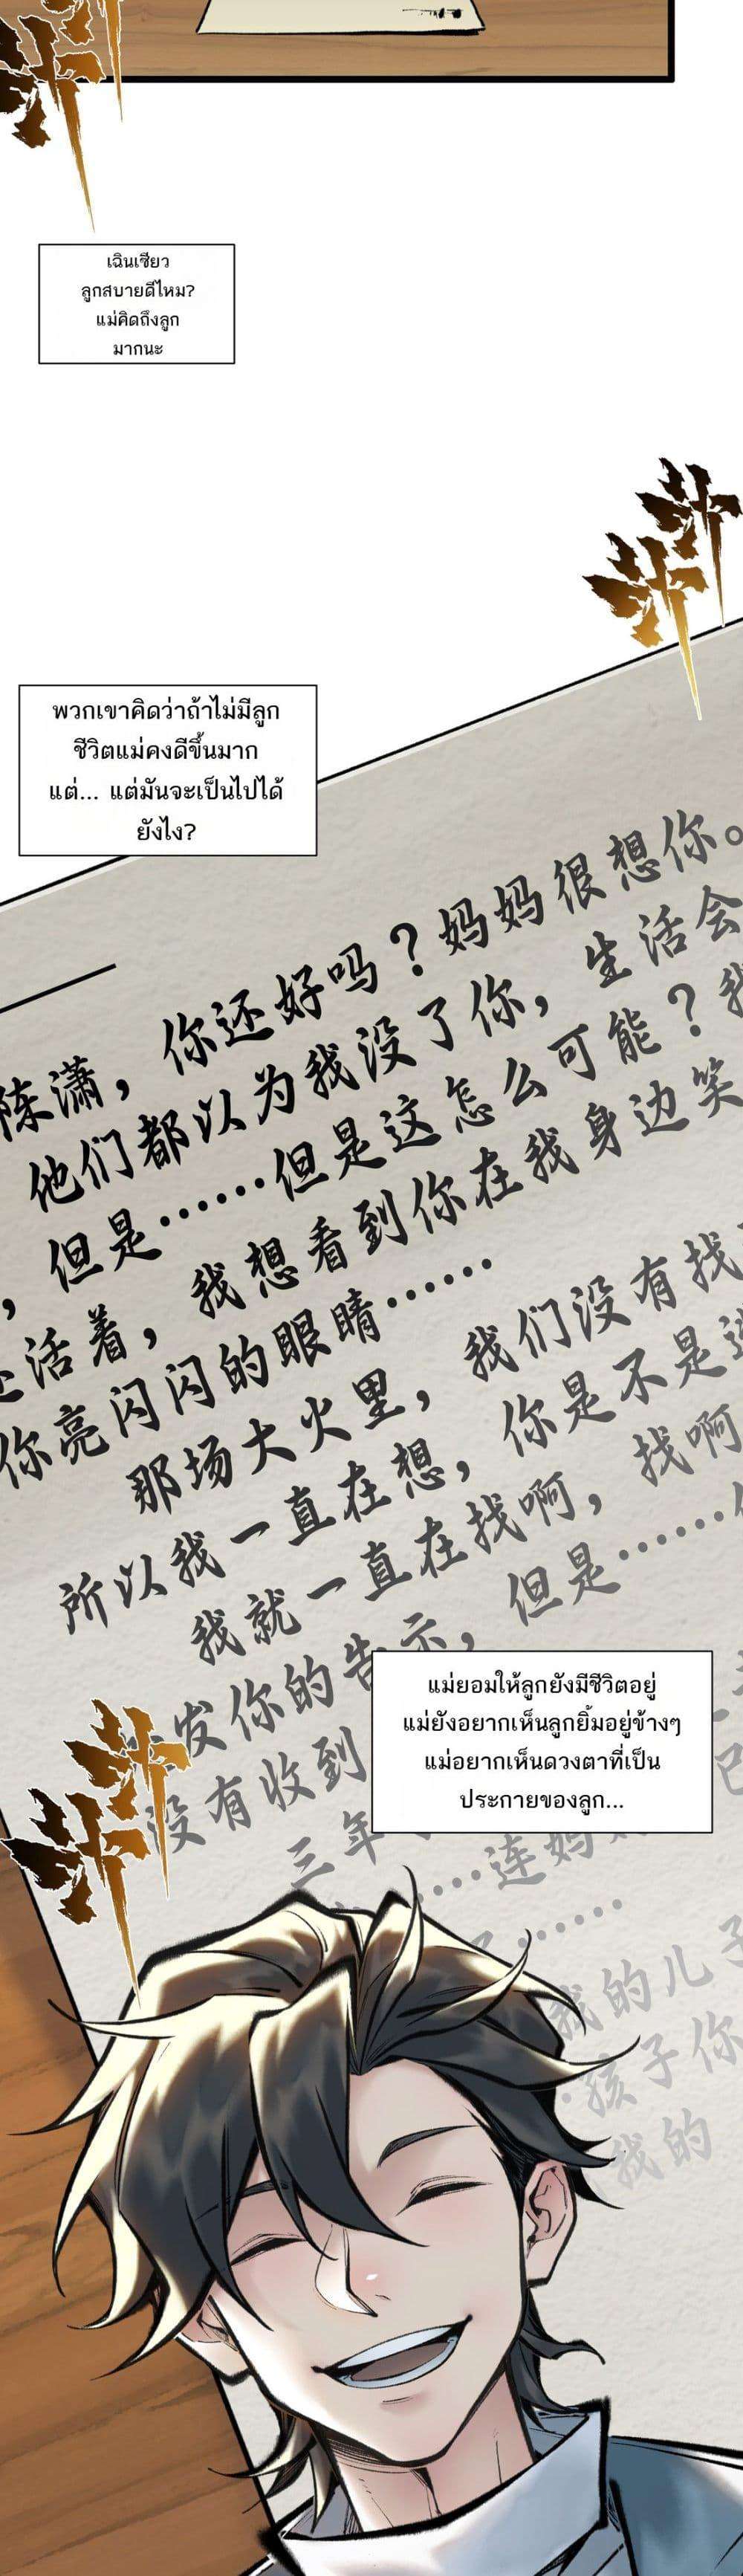 เฉินเซียว
ลูกสบายดีไหม?
แม่คิดถึงลูก
มากนะ
พวกเขาคิดว่าถ้าไม่มีลูก
ชีวิตแม่คงดีขึ้นมาก
แต่... แต่มันจะเป็นไปได้
ยังไง?
陈潇，你还好吗？妈妈很想你。
他们都以为我没了你，生活会
，但是……但是这怎么可能？我
还活着，我想看到你在我身边笑
你亮闪闪的眼睛……
那场大火里，我们没有找
所以我一直在想，你是不是
我就一直在找啊，找啊
发你的告示，但是……
没有收到
แม่ยอมให้ลูกยังมีชีวิตอยู่
แม่ยังอยากเห็นลูกยิ้มอยู่ข้างๆ
แม่อยากเห็นดวงตาที่เป็น
ประกายของลูก...
三年
……连妈
……
我的儿子
孩子你
我的